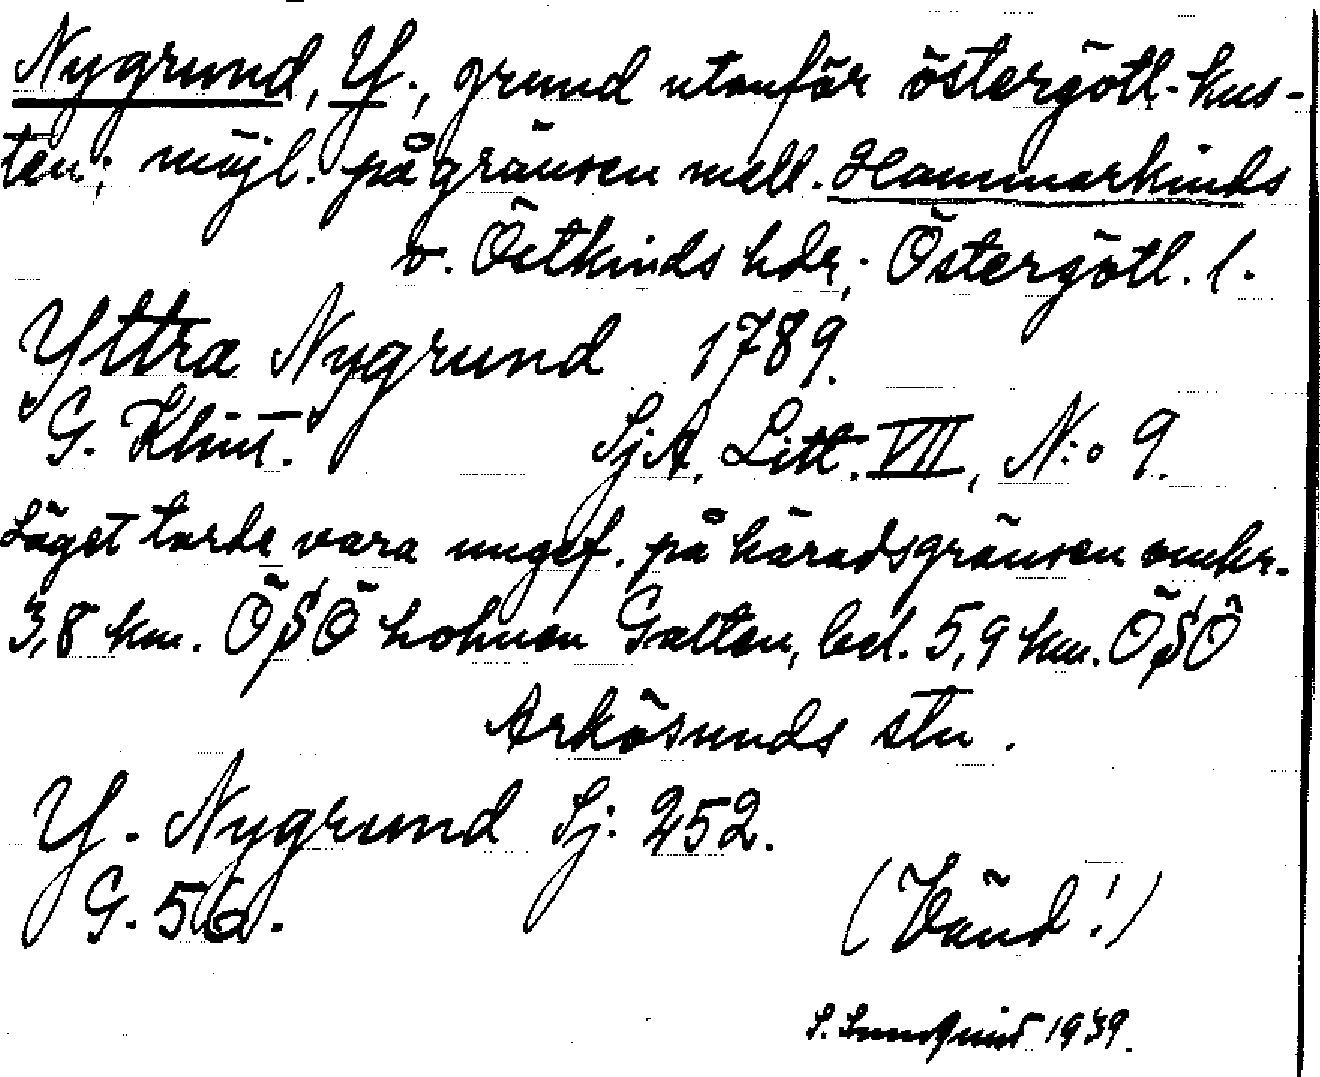 Nygrund, Y., grund utanför östergötl. kus-
ten; möjl. på gränsen mell. Hammarkinds
o. Östkinds hdr; Östergötl. l.
Yttra Nygrund 1789.
G. Klint. SjA. Litt. VII, N:o 9.
Läget torde vara ungef. på häradsgränsen omkr.
3,8 km. ÖSÖ holmen Gatten, bel. 5,9 km. ÖSÖ
Arkösunds stn.
Y. Nygrund Sj. 252.
G. 56.
(Vänd!)
S. Sundqvist 1939.